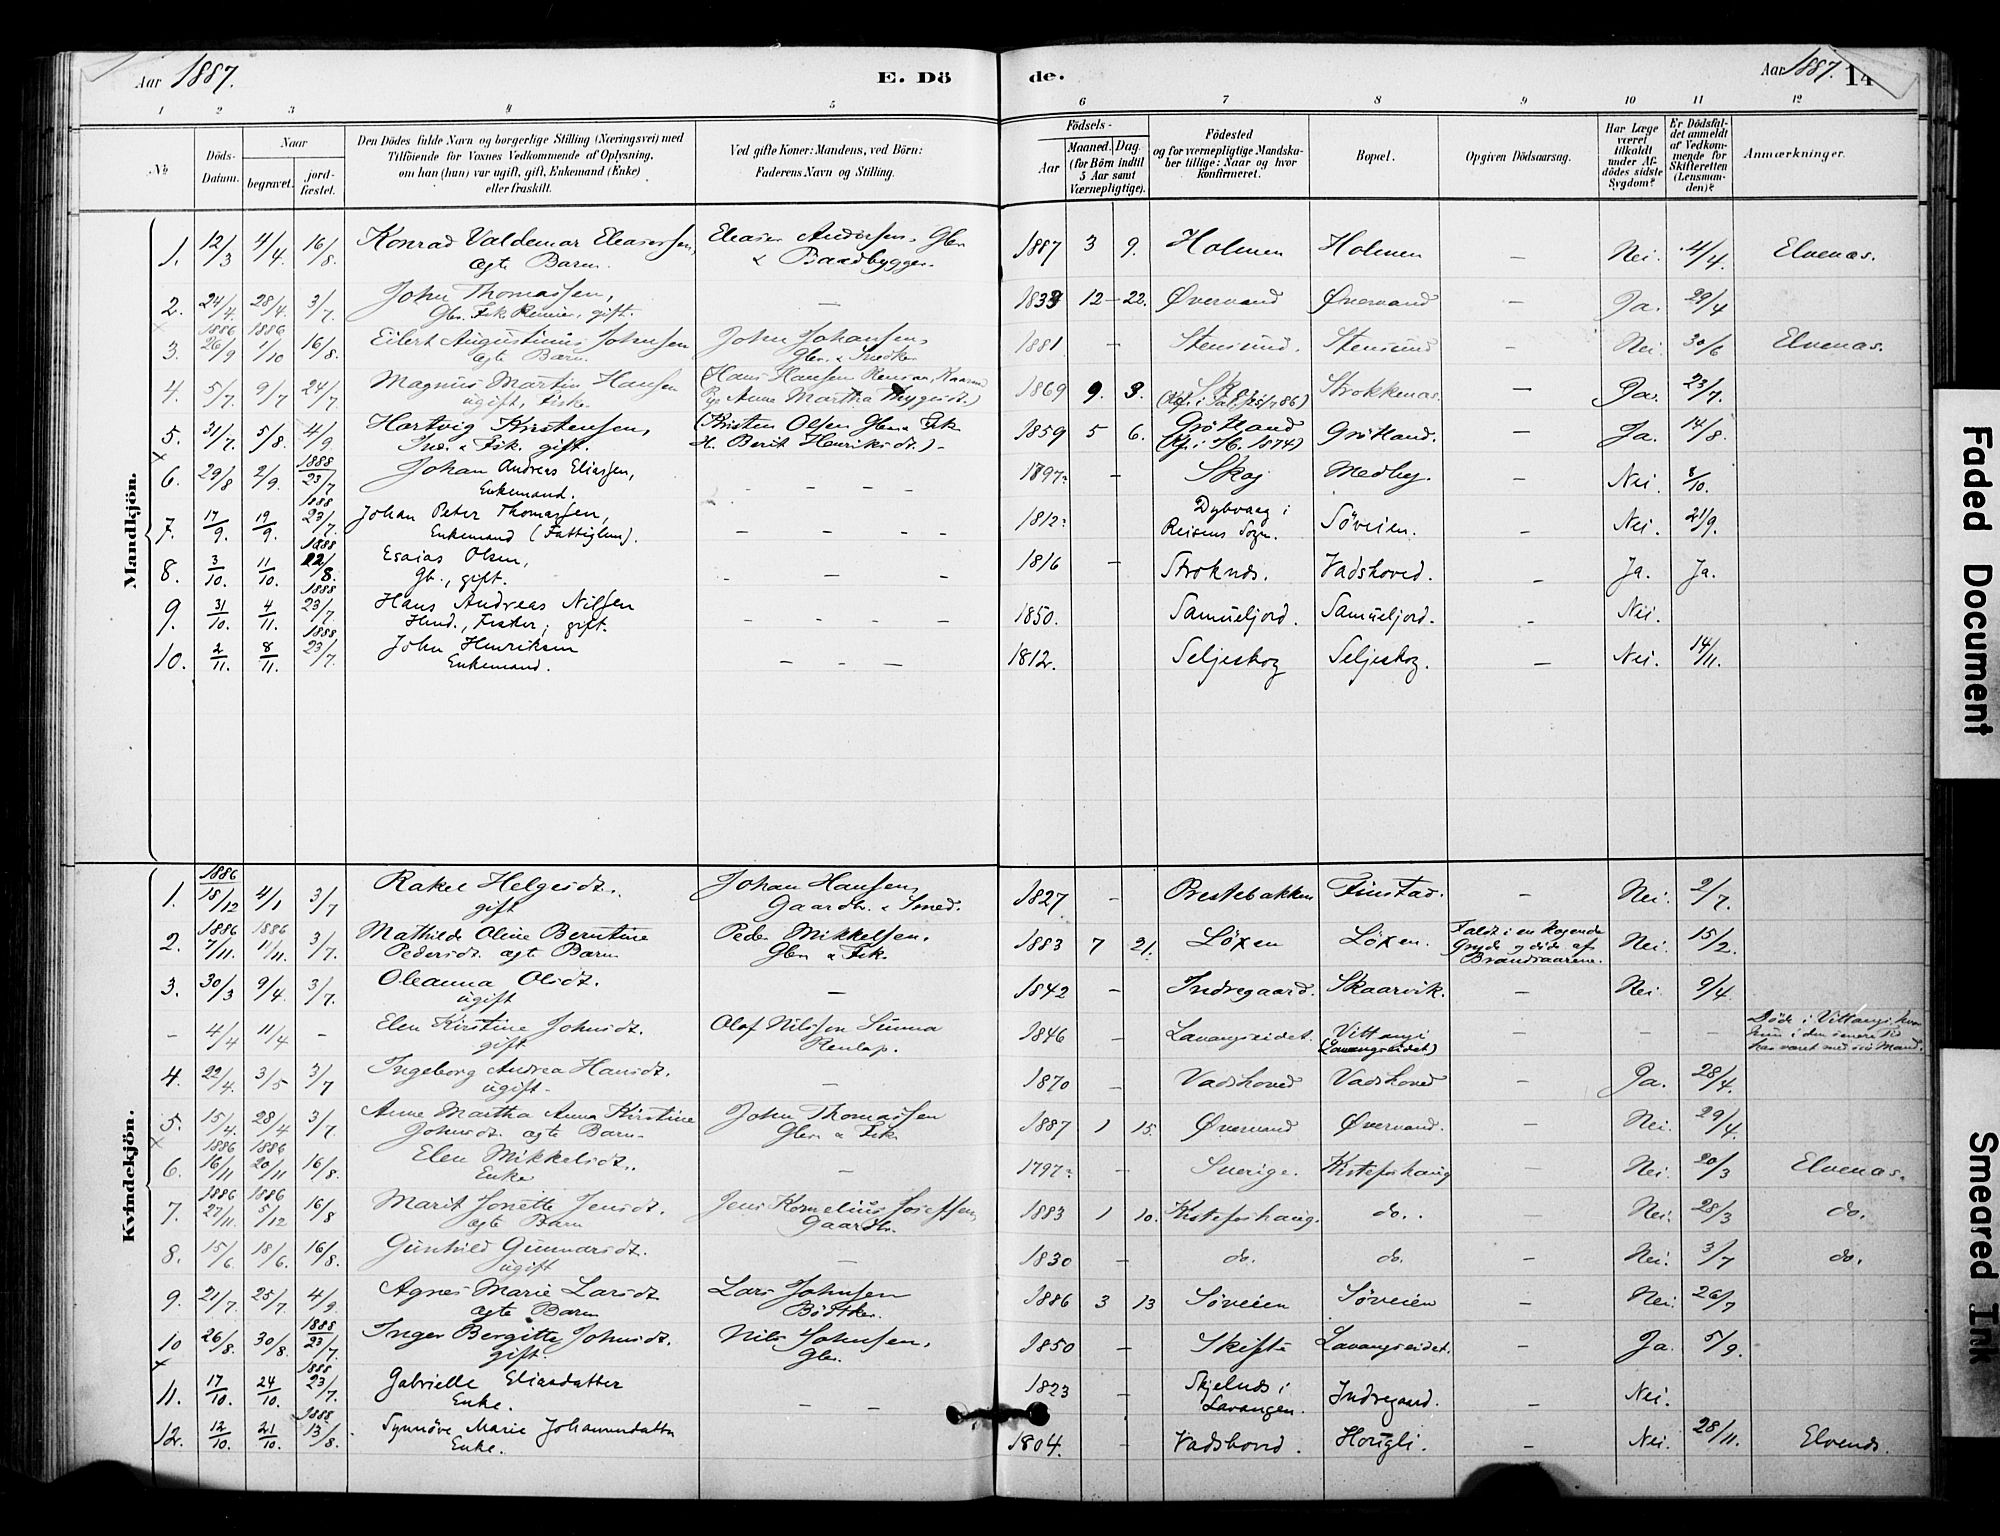 Aar 1887.
E. Döde.
Aar 1887. 14
1 2 3 4 5 6 7 8 9 10 11 12
No.
Döds-Datum.
Naar
begravet.
jord-fæstet.
Den Dödes fulde Navn og borgerlige Stilling (Næringsvei) med
Tilföiende for Voxnes Vedkommende af Oplysning,
om han (hun) var ugift, gift, Enkemand (Enke)
eller fraskilt.
Ved gifte Koner: Mandens, ved Börn:
Faderens Navn og Stilling.
Födsels-
Aar
Maaned. Dag
(for Börn indtil
5 Aar samt
Værnepligtige).
Födested
og for værnepligtige Mandska-
ber tillige: Naar og hvor
konfirmeret.
Bopæl.
Opgiven Dödsaarsag.
Har Læge
været
tilkaldt
under Af-
dödes sidste
Sygdom?
Er Dödsfal-
det anmeldt
af Vedkom-
mende for
Skifteretten
(Lensman-
den)?
Anmærkninger.
Mandkjön.
1. 12/3 4/4. 16/8. Konrad Valdemar Eleasersen, Eleaser Andersen, Gbr. 1887 3 9. Holmen Holmen – Nei. 4/4. Elvenæs.
ægte Barn. & Baadbygger.
2. 24/4. 28/4. 3/7. John Thomassen, – 12 – 22. Øvervand Øvervand – Ja. 29/4
gift.
1886 1886
3. 26/9 1/10 16/8. Eilert Augustinus Johnsen John Johansen, 1881 – Stensund. Stensund – Nei. 30/6 Elvenæs.
ægte Barn. Gbr. & Snedker
4. 5/7. 9/7 24/7. Magnus Martin Hansen (Hans Hansen 1869 9. 3. Strokkenæs. – Ja. 23/7.
ugift, Fisk. Anne Martha
5. 31/7. 5/8. 4/9. Hartvig Kristensen, (Kristen Olsen 1859 5 6. Grötland Grötland. – Ja. 14/8.
Ind. & Fisk. gift. H. Berit Henriksdt.) – (Kf. i H. 1874)
1888
6. 29/8 2/9. 23/7 Johan Andreas Eliassen, – – – – 1797. – Skog Medby. – Nei. 8/10.
Enkemand.
1888
7. 17/9. 19/9. 23/7. Johan Peter Thomassen, – – – – 1812. Dybvaag i Söveien. – Nei. 21/9.
Enkemand (Fattiglem). Reisens Sogn.
1888
8. 3/10. 11/10. 22/8. Esaias Olsen, – – – 1816 – Stroknæs. Vadshoved. – Ja. Ja.
Gb., gift.
1888
9. 31/10. 4/11. 23/7. Hans Andreas Nilsen – – – – 1850. Samueljord. Samueljord. – Nei.
Husd., Fisker, gift.
1888
10. 2/11. 8/11. 23/7. John Henriksen – – – 1812. Seljeskog Seljeskog. – Nei. 14/11.
Enkemand.
Kvindekjön.
1886
1. 15/12 4/1 3/7 Rakel Helgesdt. Johan Hansen, 1827 – Prestebakken Finstad. – Nei. 2/7.
gift Gaardbr. & Smed.
1886 1886
2. 7/11. 11/11. 3/7. Mathilde Oline Berntine Peder Mikkelsen, 1883 7 21. Löxen Löxen. Faldt i en kogende Nei. 15/2.
Pedersdt. ægte Barn Gbr & Fisk. Gryde og döde af
Brandsaarene.
3. 30/3 9/4. 3/7. Oleanna Olsdt. – 1842 – Indregaard. Skaarvik. – Nei. 9/4.
ugift
– 4/4 11/4 – Elen Kirstine Johnsdt. Olof Nilsson Sunna 1846 – Lavangseidet. Vittangi – – – Döde i Vittangi hvor
gift Renlap. (Lavangseidet) hun i den senere Tid
har været med sin Mand.
4. 22/4. 3/5 3/7 Ingeborg Andrea Hansdt. – 1870 – Vadshoved Vadshoved – Ja. 28/4.
ugift –
5. 15/4. 28/4 3/7. Anne Martha Anna Kirstine John Thomassen 1887 1 15. Øvervand Øvervand. – Nei. 29/4.
Johnsdt. ægte Barn. Gbr & Fisk.
1886 1886
6. 16/11 20/11 16/8. Elen Mikkelsdt. – 1797. – Sverige. Kisteforhaug – Nei. 20/3 Elvenæs.
Enke
1886 1886
7. 27/11. 5/12 16/8 Marit Jonette Jensdt. Jens Kornelius Josefsen 1883 1 10. Kisteforhaug. do. – Nei. 28/3 do.
ægte Barn Gaardbr.
8. 15/6. 18/6. 16/8. Gunhild Gunnarsdt. – 1830 – do. do. – Nei. 3/7 do.
ugift
9. 21/7. 25/7. 4/9. Agnes Marie Larsdt Lars Johnsen 1886 3 13 Söveien Söveien – Nei. 26/7
ægte Barn Bödtker.
1888
10 26/8. 30/8. 23/7. Inger Bergitte Johnsdt. Nils Johnsen, 1850 – Skifte Lavangseidet. – Ja. 5/9.
gift. Gbr.
1888
11. 17/10. 24/10. 23/7. Gabrielle Eliasdatter – – 1823 – Skjelnæs i Indregaard. – Nei.
Enke. Lavangen.
1888
12. 12/10. 21/10. 13/8. Synnöve Marie Johannesdatter 1804. – Vadshoved. Hougli. – Nei. 28/11. Elvenæs.
Enke.
Faded Document
Smeared Ink